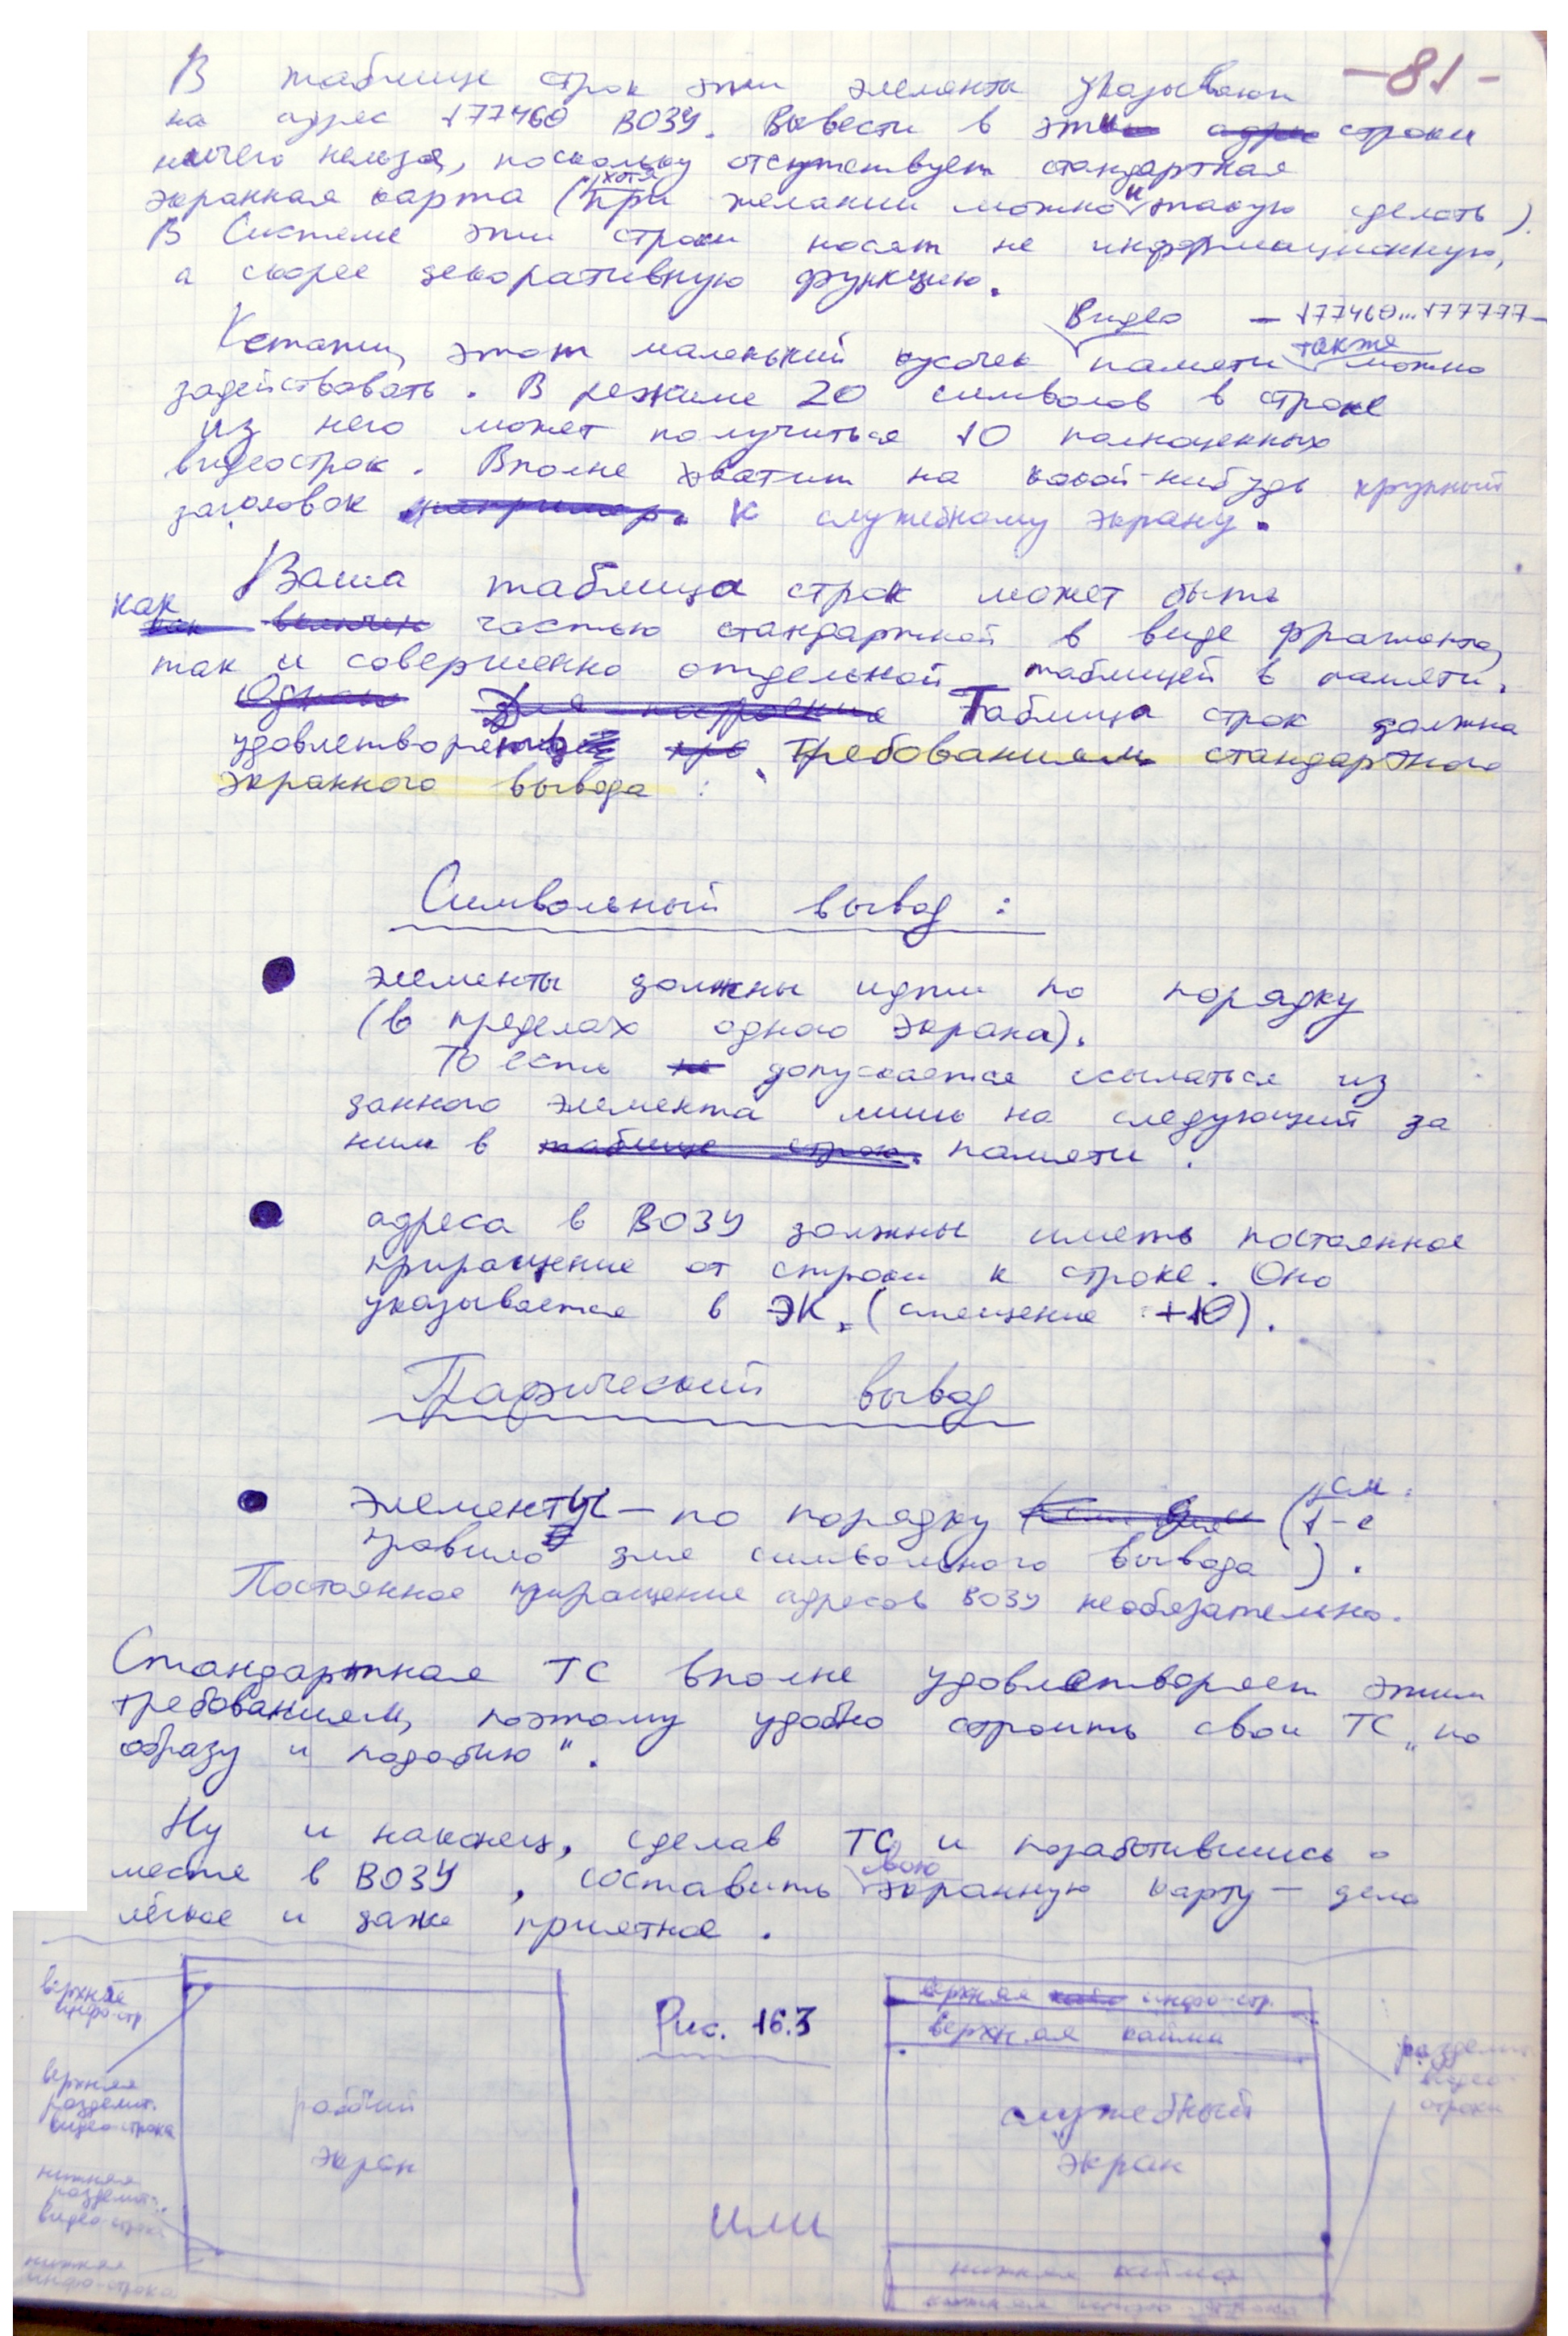 -81-
В таблице строк эти элементы указывают
на адрес 177460 ВОЗУ. Вывести в эти строки
ничего нельзя, поскольку отсутствует стандартная
экранная карта (хотя при желании можно и такую сделать).
В Системе эти строки носят не информационную,
а скорее декоративную функцию.
Кстати, этот маленький кусочек видео памяти — 177460...177777 — также можно
задействовать. В режиме 20 символов в строке
из него может получиться 10 полноценных
видеострок. Вполне хватит на какой-нибудь крупный
заголовок к служебному экрану.
Ваша таблица строк может быть
как частью стандартной в виде фрагмента,
так и совершенно отдельной таблицей в памяти.
Таблица строк должна
удовлетворять требованиям стандартного
экранного вывода:
Символьный вывод:
элементы должны идти по порядку
(в пределах одного экрана).
То есть допускается ссылаться из
данного элемента лишь на следующий за
ним в памяти.
адреса в ВОЗУ должны иметь постоянное
приращение от строки к строке. Оно
указывается в ЭК, (смещение +10).
Графический вывод
элементы — по порядку (см. 1-е
правило для символьного вывода).
Постоянное приращение адресов ВОЗУ необязательно.
Стандартная ТС вполне удовлетворяет этим
требованиям, поэтому удобно строить свои ТС „по
образу и подобию".
Ну и наконец, сделав ТС и позаботившись о
месте в ВОЗУ, составить свою экранную карту — дело
лёгкое и даже приятное.
верхняя
инфо-стр.
верхняя
разделит.
видео-строка
нижняя
разделит.
видео-строка
нижняя
инфо-строка
рабочий
экран
Рис. 16.3
или
верхняя инфо-стр.
верхняя кайма
служебный
экран
нижняя кайма
нижняя инфо-строка
разделит.
видео-
строки